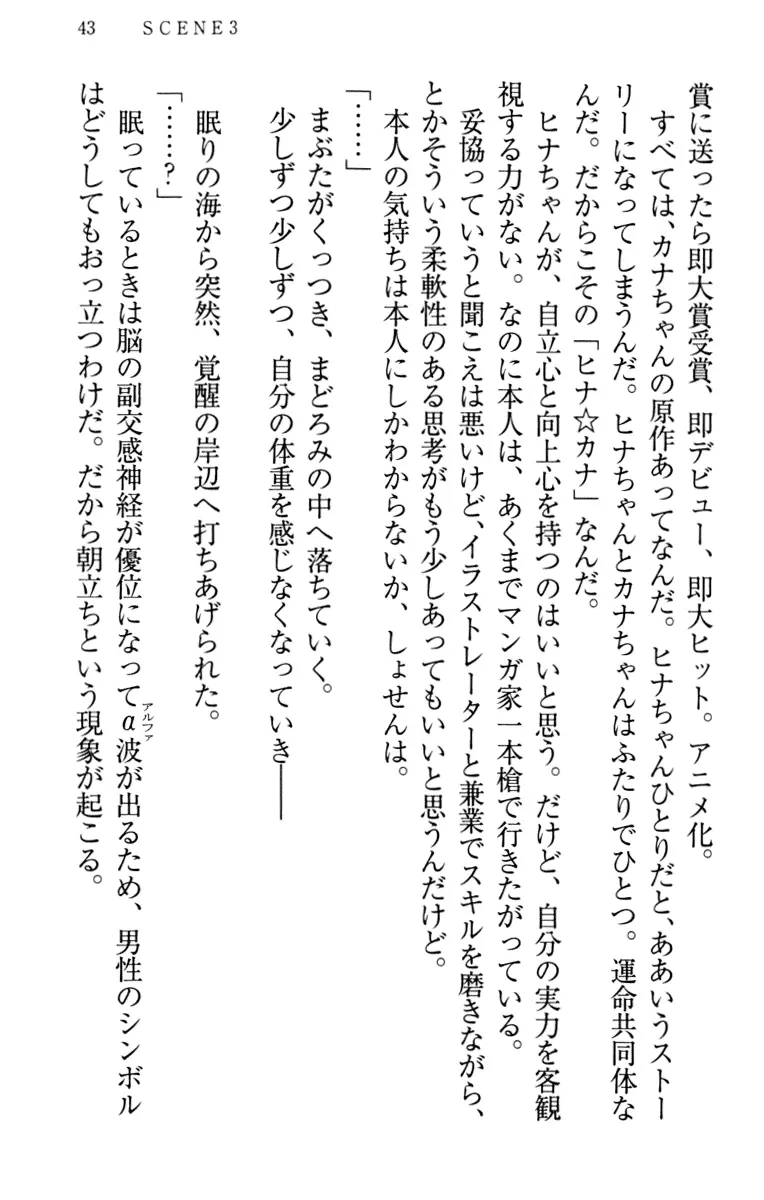 43 SCENE3
賞に送ったら即大賞受賞、即デビュー、即大ヒット。アニメ化。
　すべては、カナちゃんの原作あってなんだ。ヒナちゃんひとりだと、ああいうストー
リーになってしまうんだ。ヒナちゃんとカナちゃんはふたりでひとつ。運命共同体な
んだ。だからこその「ヒナ☆カナ」なんだ。
　ヒナちゃんが、自立心と向上心を持つのはいいと思う。だけど、自分の実力を客観
視する力がない。なのに本人は、あくまでマンガ家一本槍で行きたがっている。
　妥協っていうと聞こえは悪いけど、イラストレーターと兼業でスキルを磨きながら、
とかそういう柔軟性のある思考がもう少しあってもいいと思うんだけど。
　本人の気持ちは本人にしかわからないか、しょせんは。
「……」
　まぶたがくっつき、まどろみの中へ落ちていく。
　少しずつ少しずつ、自分の体重を感じなくなっていき――
　眠りの海から突然、覚醒の岸辺へ打ちあげられた。
「……？」
　眠っているときは脳の副交感神経が優位になってα波が出るため、男性のシンボル
アルファ
はどうしてもおっ立つわけだ。だから朝立ちという現象が起こる。